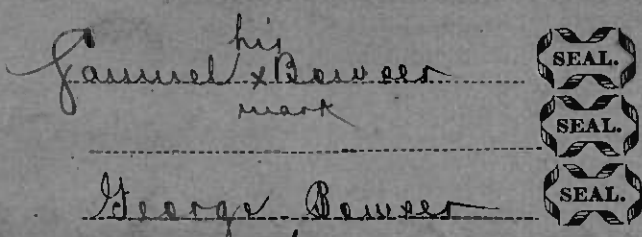 his
Samuel x Bowser SEAL.
mark
SEAL.
George Bowser SEAL.